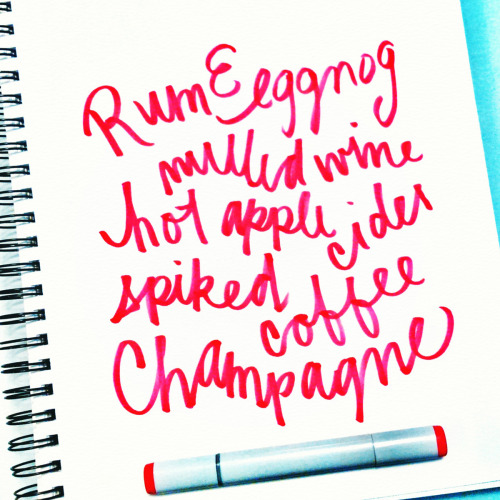 Rum & eggnog
mulled wine
hot apple cider
spiked coffee
Champagne